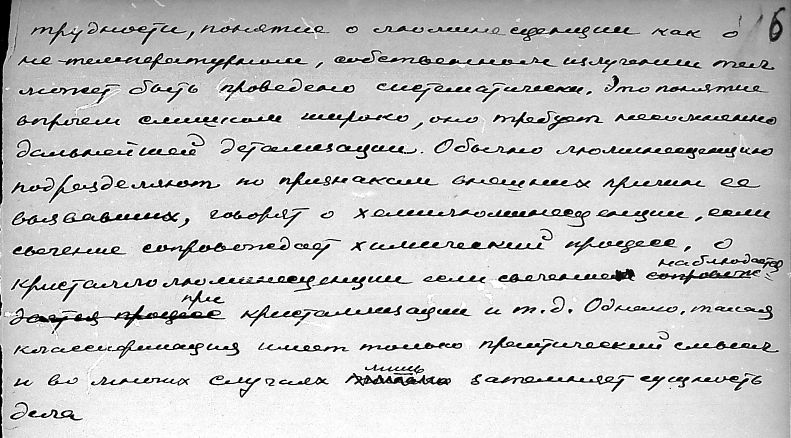 6
трудности, понятие о люминесценции как о
не-температурном, собственном излучении тел
может быть проведено систематически. Это понятие
впрочем слишком широко, оно требует несомненно
дальнейшей детализации. Обычно люминесценцию
подразделяют по признакам внешних причин ее
вызвавших, говорят о хемилюминесценции, если
свечение сопровождает химический процесс, о
кристаллолюминесценции если свечение наблюдается сопровож-
дается процесс при кристаллизации и т.д. Однако, такая
классификация имеет только практический смысл
и во многих случаях лишь затемняет сущность
дела